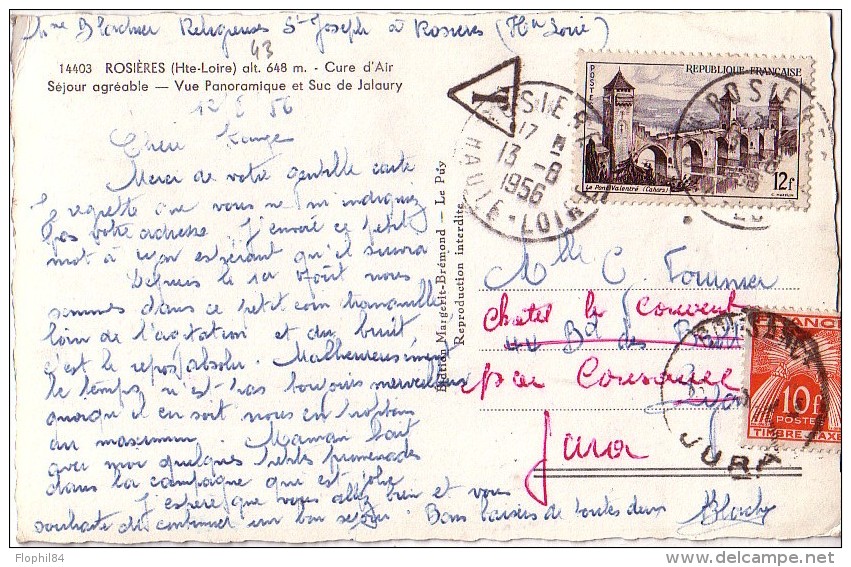 Mme Blachier Religieuses St Joseph à Rosières (Hte Loire)
43
14403 ROSIÈRES (Hte-Loire) alt. 648 m. - Cure d'Air
Séjour agréable — Vue Panoramique et Suc de Jalaury
12/8 56
Chère
Merci de votre gentille carte
Je regrette que vous ne m'indiquiez
pas votre adresse. J'envoie ce petit
mot à Lyon espérant qu'il suivra
Depuis le 1er Août nous
sommes dans ce petit coin tranquille
loin de l'agitation et du bruit,
c'est le repos absolu. Malheureusement
le temps n'est pas toujours merveilleux
quoiqu'il en soit nous en profitons
au maximum. Maman fait
avec moi quelques petites promenades
dans la campagne qui est jolie
J'espère que vous allez bien et vous
souhaite de continuer un bon séjour. Bons baisers de toutes deux
Blachy
Edition Margerit-Brémond - Le Puy
Reproduction interdite
T
ROSIERES
17 H
13 -8
1956
HAUTE-LOIRE
POSTES
REPUBLIQUE FRANÇAISE
Le Pont Valentré (Cahors)
12f
ROSIERES
Mlle C. Fournier
44 Bd des
Lyon
Chatel le Couvent
par Cousance
Jura
COUSANCE
JURA
FRANCE
10f
POSTES
TIMBRE TAXE
Flophil84
delcampe.net